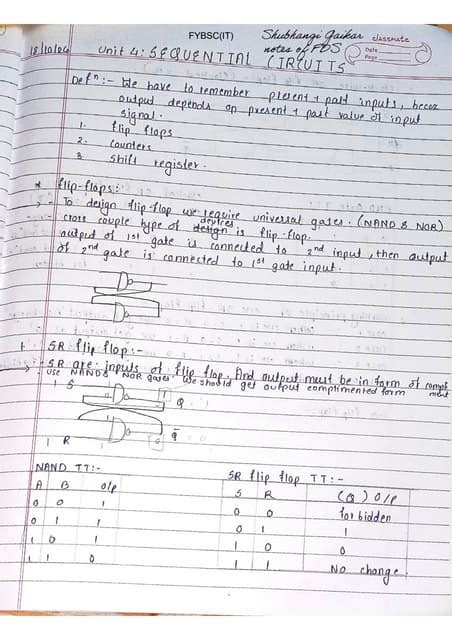 FYBSC(IT)
Shubhangi Gaikar
notes of FDS
classmate
Date
Page
18/10/24
Unit 4: SEQUENTIAL CIRCUITS
Defⁿ :- We have to remember present + past inputs, becoz
output depends on present + past value of input
signal.
1. flip flops
2. counters
3. shift register.
* flip-flops :-
:- To design flip-flop we require universal gates. (NAND & NOR)
devices
cross couple type of design is flip-flop.
output of 1st gate is connected to 2nd input, then output
of 2nd gate is connected to 1st gate input.
1. SR flip flop :-
→ :- SR are inputs of flip flop. And output must be in form of compli
ment
use NAND & NOR gates. We should get output complimented form
1 S
Q
Q̄
1 R
NAND TT:-
A B o/p
0 0 1
0 1 1
1 0 1
1 1 0
SR flip flop TT:-
S R (Q) O/P
0 0 forbidden
0 1 1
1 0 0
1 1 No change.